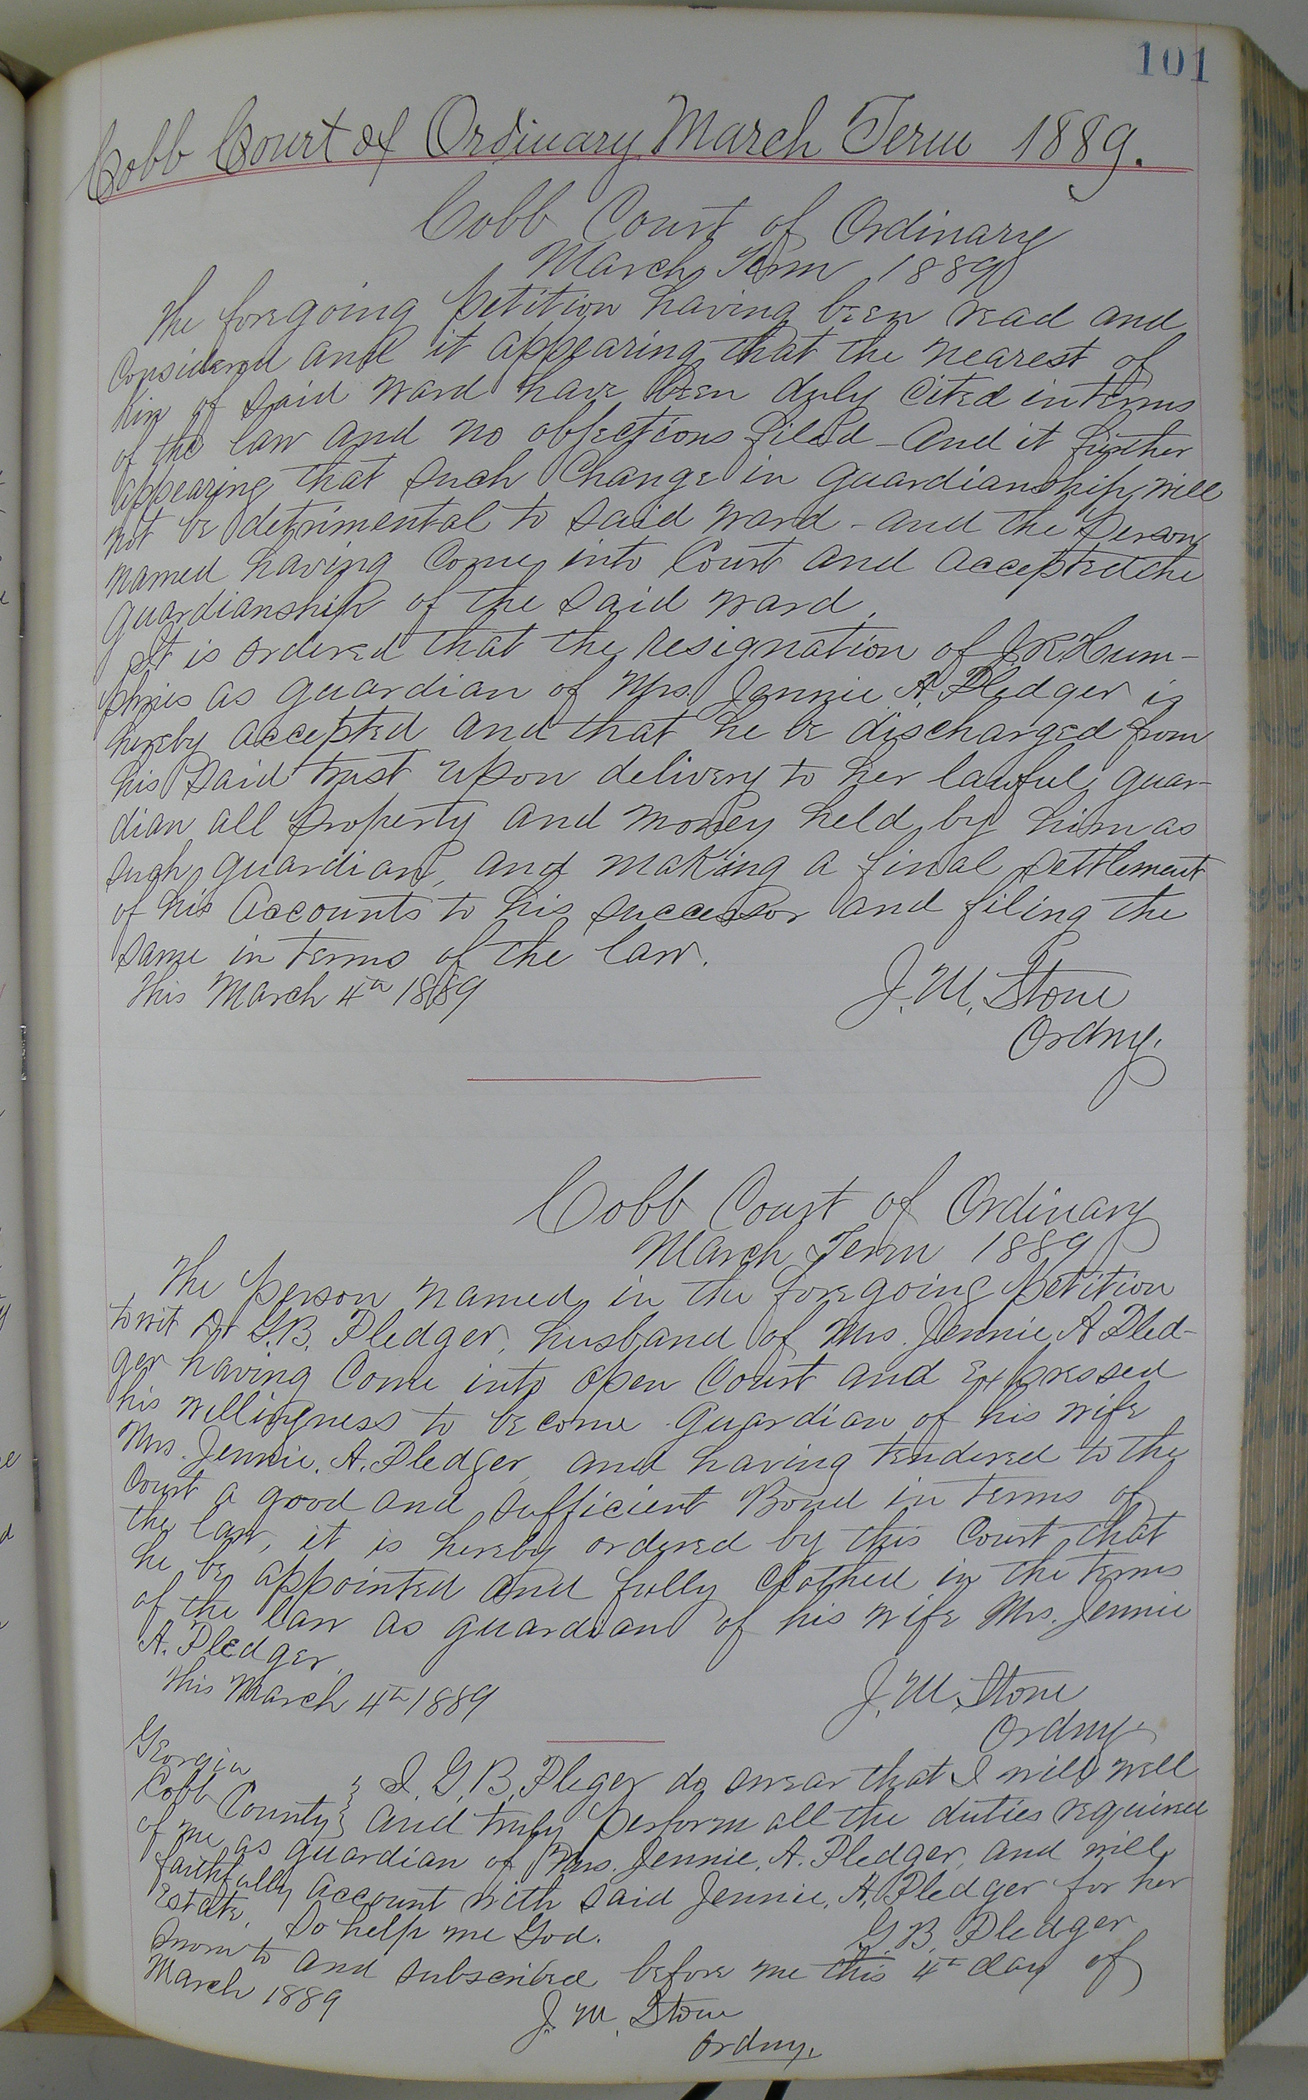 101
Cobb Court of Ordinary March Term 1889.
Cobb Court of Ordinary
March Term 1889
The foregoing petition having been read and
Considered and it appearing that the nearest of
Kin of said ward have been duly cited in terms
of the law and no objections filed - And it further
appearing that such Change in guardianship will
not be detrimental to said ward - and the person
named having Come into Court and accepted the
guardianship of the said ward.
It is ordered that the resignation of J.R. Hum-
phries as guardian of Mrs. Jennie A. Pledger is
hereby accepted and that he be discharged from
his said trust upon delivery to her lawful guar-
dian all property and money held by him as
such guardian, and making a final settlement
of his Accounts to his successor and filing the
same in terms of the law.
This March 4th 1889
J. M. Stone
Ordny.
Cobb Court of Ordinary
March Term 1889
The person named in the foregoing petition
to wit Dr G.B. Pledger, husband of Mrs. Jennie A Pled-
ger having Come into open Court and expressed
his willingness to become guardian of his wife
Mrs. Jennie. A. Pledger, and having tendered to the
Court a good and sufficient Bond in terms of
the law, it is hereby ordered by this Court that
he be appointed and fully clothed in the terms
of the law as guardian of his wife Mrs. Jennie
A. Pledger.
This March 4th 1889
J. M. Stone
Ordny.
Georgia
Cobb County } I, G.B. Pleger do swear that I will well
and truly perform all the duties required
of me as guardian of Mrs. Jennie. A. Pledger, and will
faithfully account with said Jennie. A. Pledger for her
Estate. So help me God.
G.B. Pledger
Sworn to and subscribed before me this 4th day of
March 1889
J. M. Stone
Ordny.